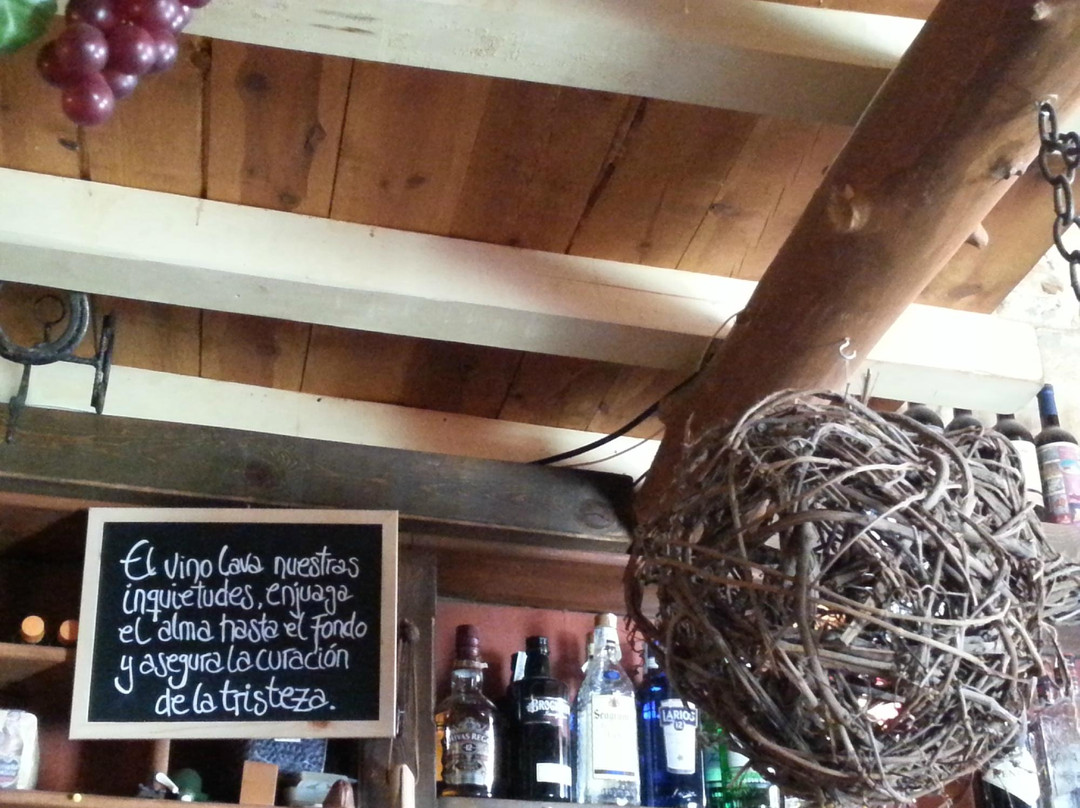 El vino lava nuestras
inquietudes, enjuaga
el alma hasta el fondo
y asegura la curación
de la tristeza.
CHIVAS REGAL
12
LARIOS
12